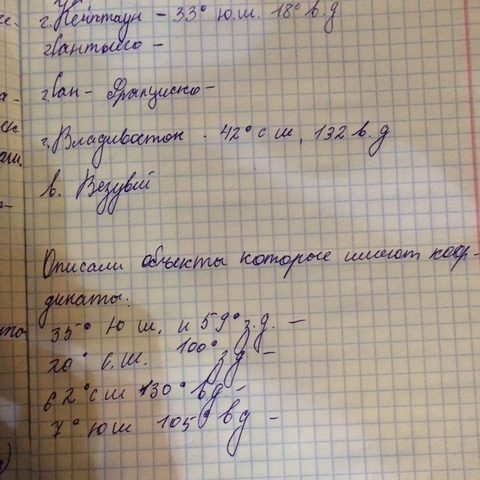 г. Кейптаун - 33° ю.ш. 18° в.д
г. Сан - Франциско -
г. Владивосток - 42° с ш, 132 в. д
в. Везувий
Описали объекты которые имеют коор-
динаты.
35° ю ш, и 59° з.д. -
20° с.ш. 100° з д -
62° с ш 130° в д -
7° ю ш 105° в д -